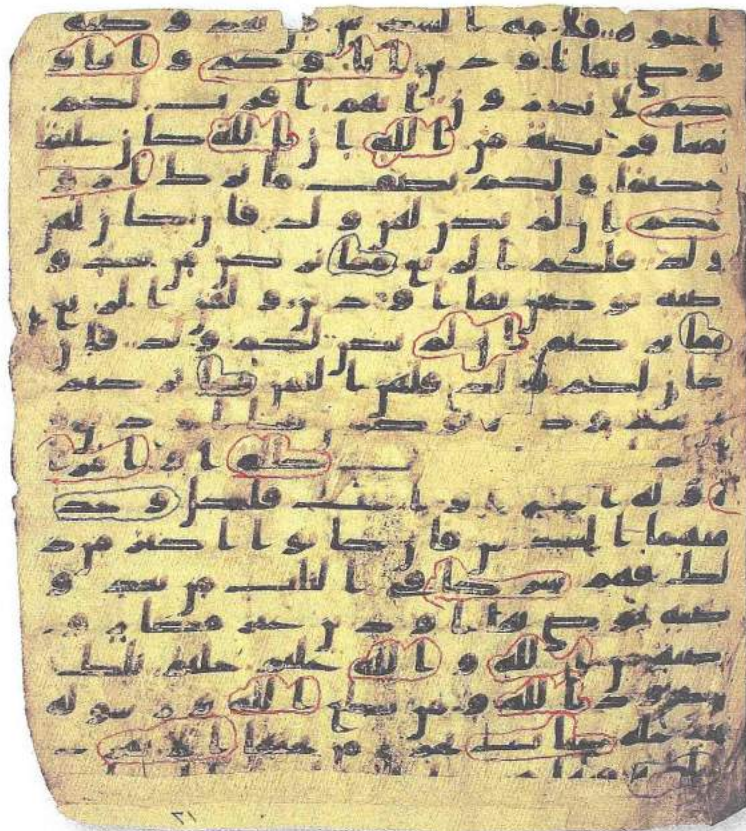 اخوه فلامه السدس من بعد وصيه
يوصي بها او دين اباوكم و ابناو
كم لا تدرون ايهم اقرب لكم
نفعا فريضه من الله ان الله كان عليما
حكيما ولكم نصف ما ترك ازو
جكم ان لم يكن لهن ولد فان كان لهن
ولد فلكم الربع مما تركن من بعد و
صيه يوصين بها او دين ولهن الربع
مما تركتم ان لم يكن لكم ولد فان
كان لكم ولد فلهن الثمن مما تركتم
من بعد وصيه توصون بها او دين و
كلله او امرا
ه وله اخ او اخت فلكل وحد
منهما السدس فان كانوا اكثر من ذ
لك فهم شركا في الثلث من بعد و
صيه يوصي بها او دين غير مضار و
صيه من الله و الله عليم حليم تلك
حدود الله ومن يطع الله ورسوله
يدخله جنات تجري من تحتها الانهر